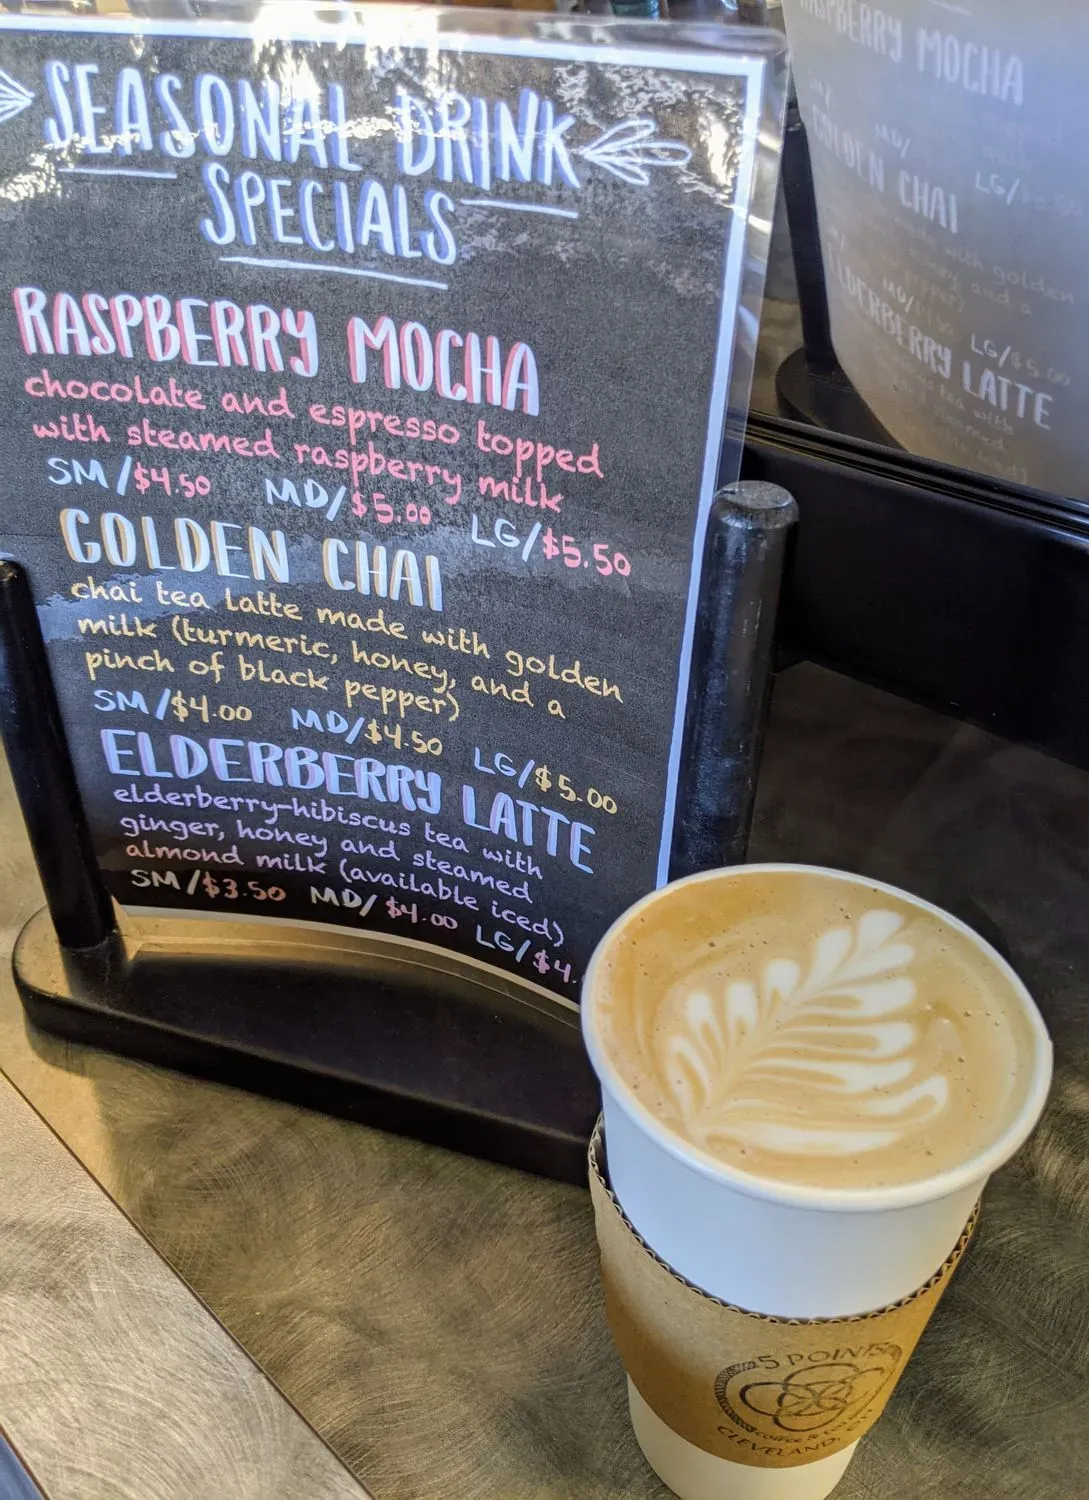 SEASONAL DRINK
SPECIALS
RASPBERRY MOCHA
chocolate and espresso topped
with steamed raspberry milk
SM/$4.50 MD/$5.00 LG/$5.50
GOLDEN CHAI
chai tea latte made with golden
milk (turmeric, honey, and a
pinch of black pepper)
SM/$4.00 MD/$4.50 LG/$5.00
ELDERBERRY LATTE
elderberry-hibiscus tea with
ginger, honey and steamed
almond milk (available iced)
SM/$3.50 MD/$4.00 LG/$4.
RASPBERRY MOCHA
MD/
LG/
GOLDEN CHAI
made with golden
honey, and a
pepper)
MD/ LG/$5.00
ELDERBERRY LATTE
tea with
5 POINTS
coffee & tea
CLEVELAND,